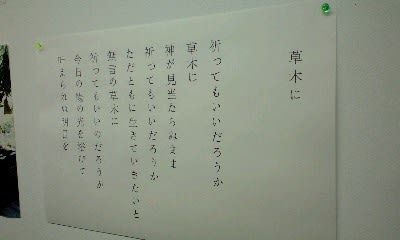 草木に
祈ってもいいだろうか
草木に
神が見当たらぬまま
祈ってもいいだろうか
ただともに生きていきたいと
無言の草木に
祈ってもいいのだろうか
今日の陽の光を浴びて
止まられぬ明日を